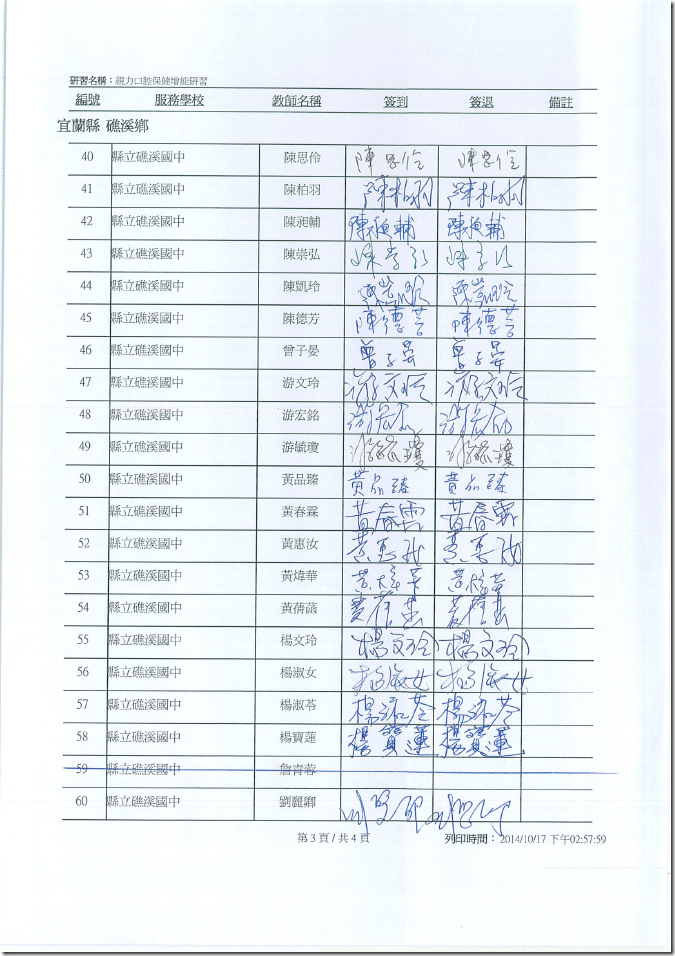 研習名稱：視力口腔保健增能研習
編號 服務學校 教師名稱 簽到 簽退 備註
宜蘭縣 礁溪鄉
40 縣立礁溪國中 陳思伶 陳思伶 陳思伶
41 縣立礁溪國中 陳柏羽 陳柏羽 陳柏羽
42 縣立礁溪國中 陳昶輔 陳昶輔 陳昶輔
43 縣立礁溪國中 陳崇弘
44 縣立礁溪國中 陳凱玲 陳凱玲 陳凱玲
45 縣立礁溪國中 陳德芳 陳德芳 陳德芳
46 縣立礁溪國中 曾子晏 曾子晏 曾子晏
47 縣立礁溪國中 游文玲 游文玲 游文玲
48 縣立礁溪國中 游宏銘 游宏銘 游宏銘
49 縣立礁溪國中 游毓瓊 游毓瓊 游毓瓊
50 縣立礁溪國中 黃品臻 黃品臻 黃品臻
51 縣立礁溪國中 黃春霖 黃春霖 黃春霖
52 縣立礁溪國中 黃惠汝 黃惠汝 黃惠汝
53 縣立礁溪國中 黃煒華 黃煒華 黃煒華
54 縣立礁溪國中 黃蒨菡
55 縣立礁溪國中 楊文玲 楊文玲 楊文玲
56 縣立礁溪國中 楊淑女 楊淑女 楊淑女
57 縣立礁溪國中 楊淑苓 楊淑苓 楊淑苓
58 縣立礁溪國中 楊寶蓮 楊寶蓮 楊寶蓮
59 縣立礁溪國中 詹青蓉
60 縣立礁溪國中 劉麗卿
第 3 頁 / 共 4 頁 列印時間：2014/10/17 下午02:57:59